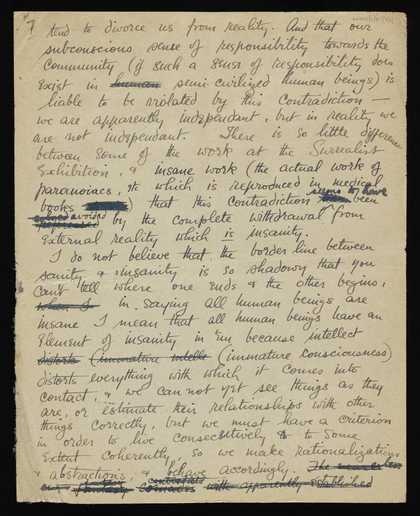 7 tend to divorce us from reality. And that our
subconscious sense of responsibility towards the
community (if such a sense of responsibility does
exist in human semi-civilized human beings) is
liable to be violated by this contradiction –
we are apparently independant, but in reality we
are not independant. There is so little difference
between some of the work at the Surrealist
Exhibition, & insane work (the actual work of
paranoiacs, etc which is reproduced in medical
books) that this contradiction seems to have been
avoided by the complete withdrawal from
External reality which is insanity.
I do not believe that the border line between
sanity & insanity is so shadowy that you
can't tell where one ends & the other begins,
when I in saying all human beings are
insane I mean that all human beings have an
Element of insanity in 'em because intellect
distorts (immature intelle (immature consciousness)
distorts everything with which it comes into
contact, & we can not yet see things as they
are, or estimate their relationships with other
things correctly, but we must have a criterion
in order to live consecutively & to some
Extent coherently, so we make rationalizations
& abstractions, & behave accordingly. The
fantasy contradicts with apparently established